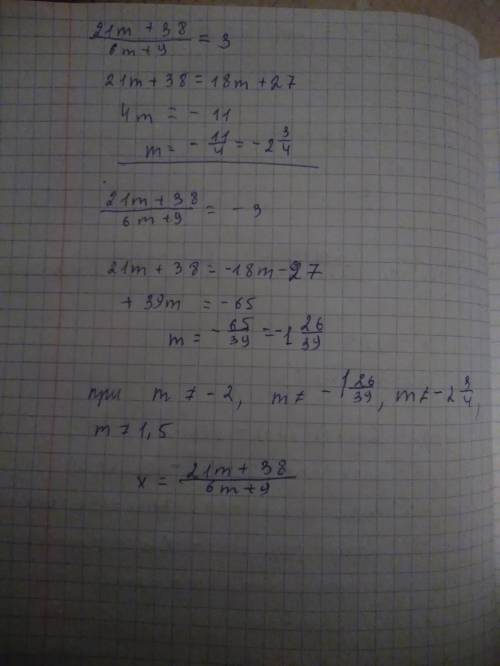 (21m + 38)/(6m + 9) = 3
21m + 38 = 18m + 27
4m = - 11
m = - 11/4 = - 2 3/4
(21m + 38)/(6m + 9) = - 3
21m + 38 = -18m - 27
+ 39m = - 65
m = - 65/39 = -1 26/39
при m ≠ - 2, m ≠ - 1 26/39, m ≠ - 2 3/4,
m ≠ 1,5
x = (21m + 38)/(6m + 9)